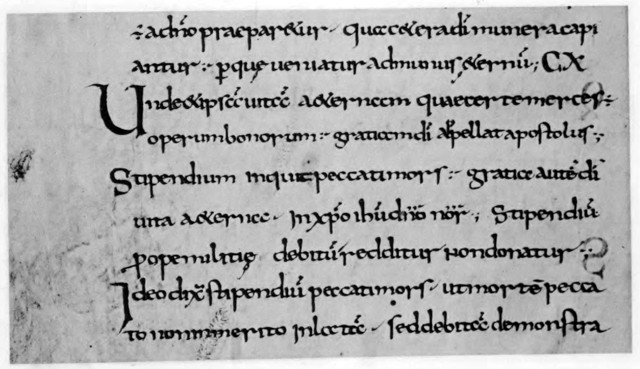 ÷ a dn̄o praeparetur · quo cetera dī munera capi
antur :· p̱ quę ueniatur ad munus aeternū ; CX
Unde et ipsa uita aeterna quae certe merces ÷
operum bonorum :· gratia dī appellat apostolus ;
Stipendium inquit peccati mors :· gratia autē dī
uita aeterna · In xp̄o ihū dn̄o nr̄o ; Stipendiū
ꝓ ope militię debitū redditur non donatur :·
Ideo dix̄ stipendiū peccati mors · ut mortē pecca
to non inmerito inlatā · sed debitā demonstra